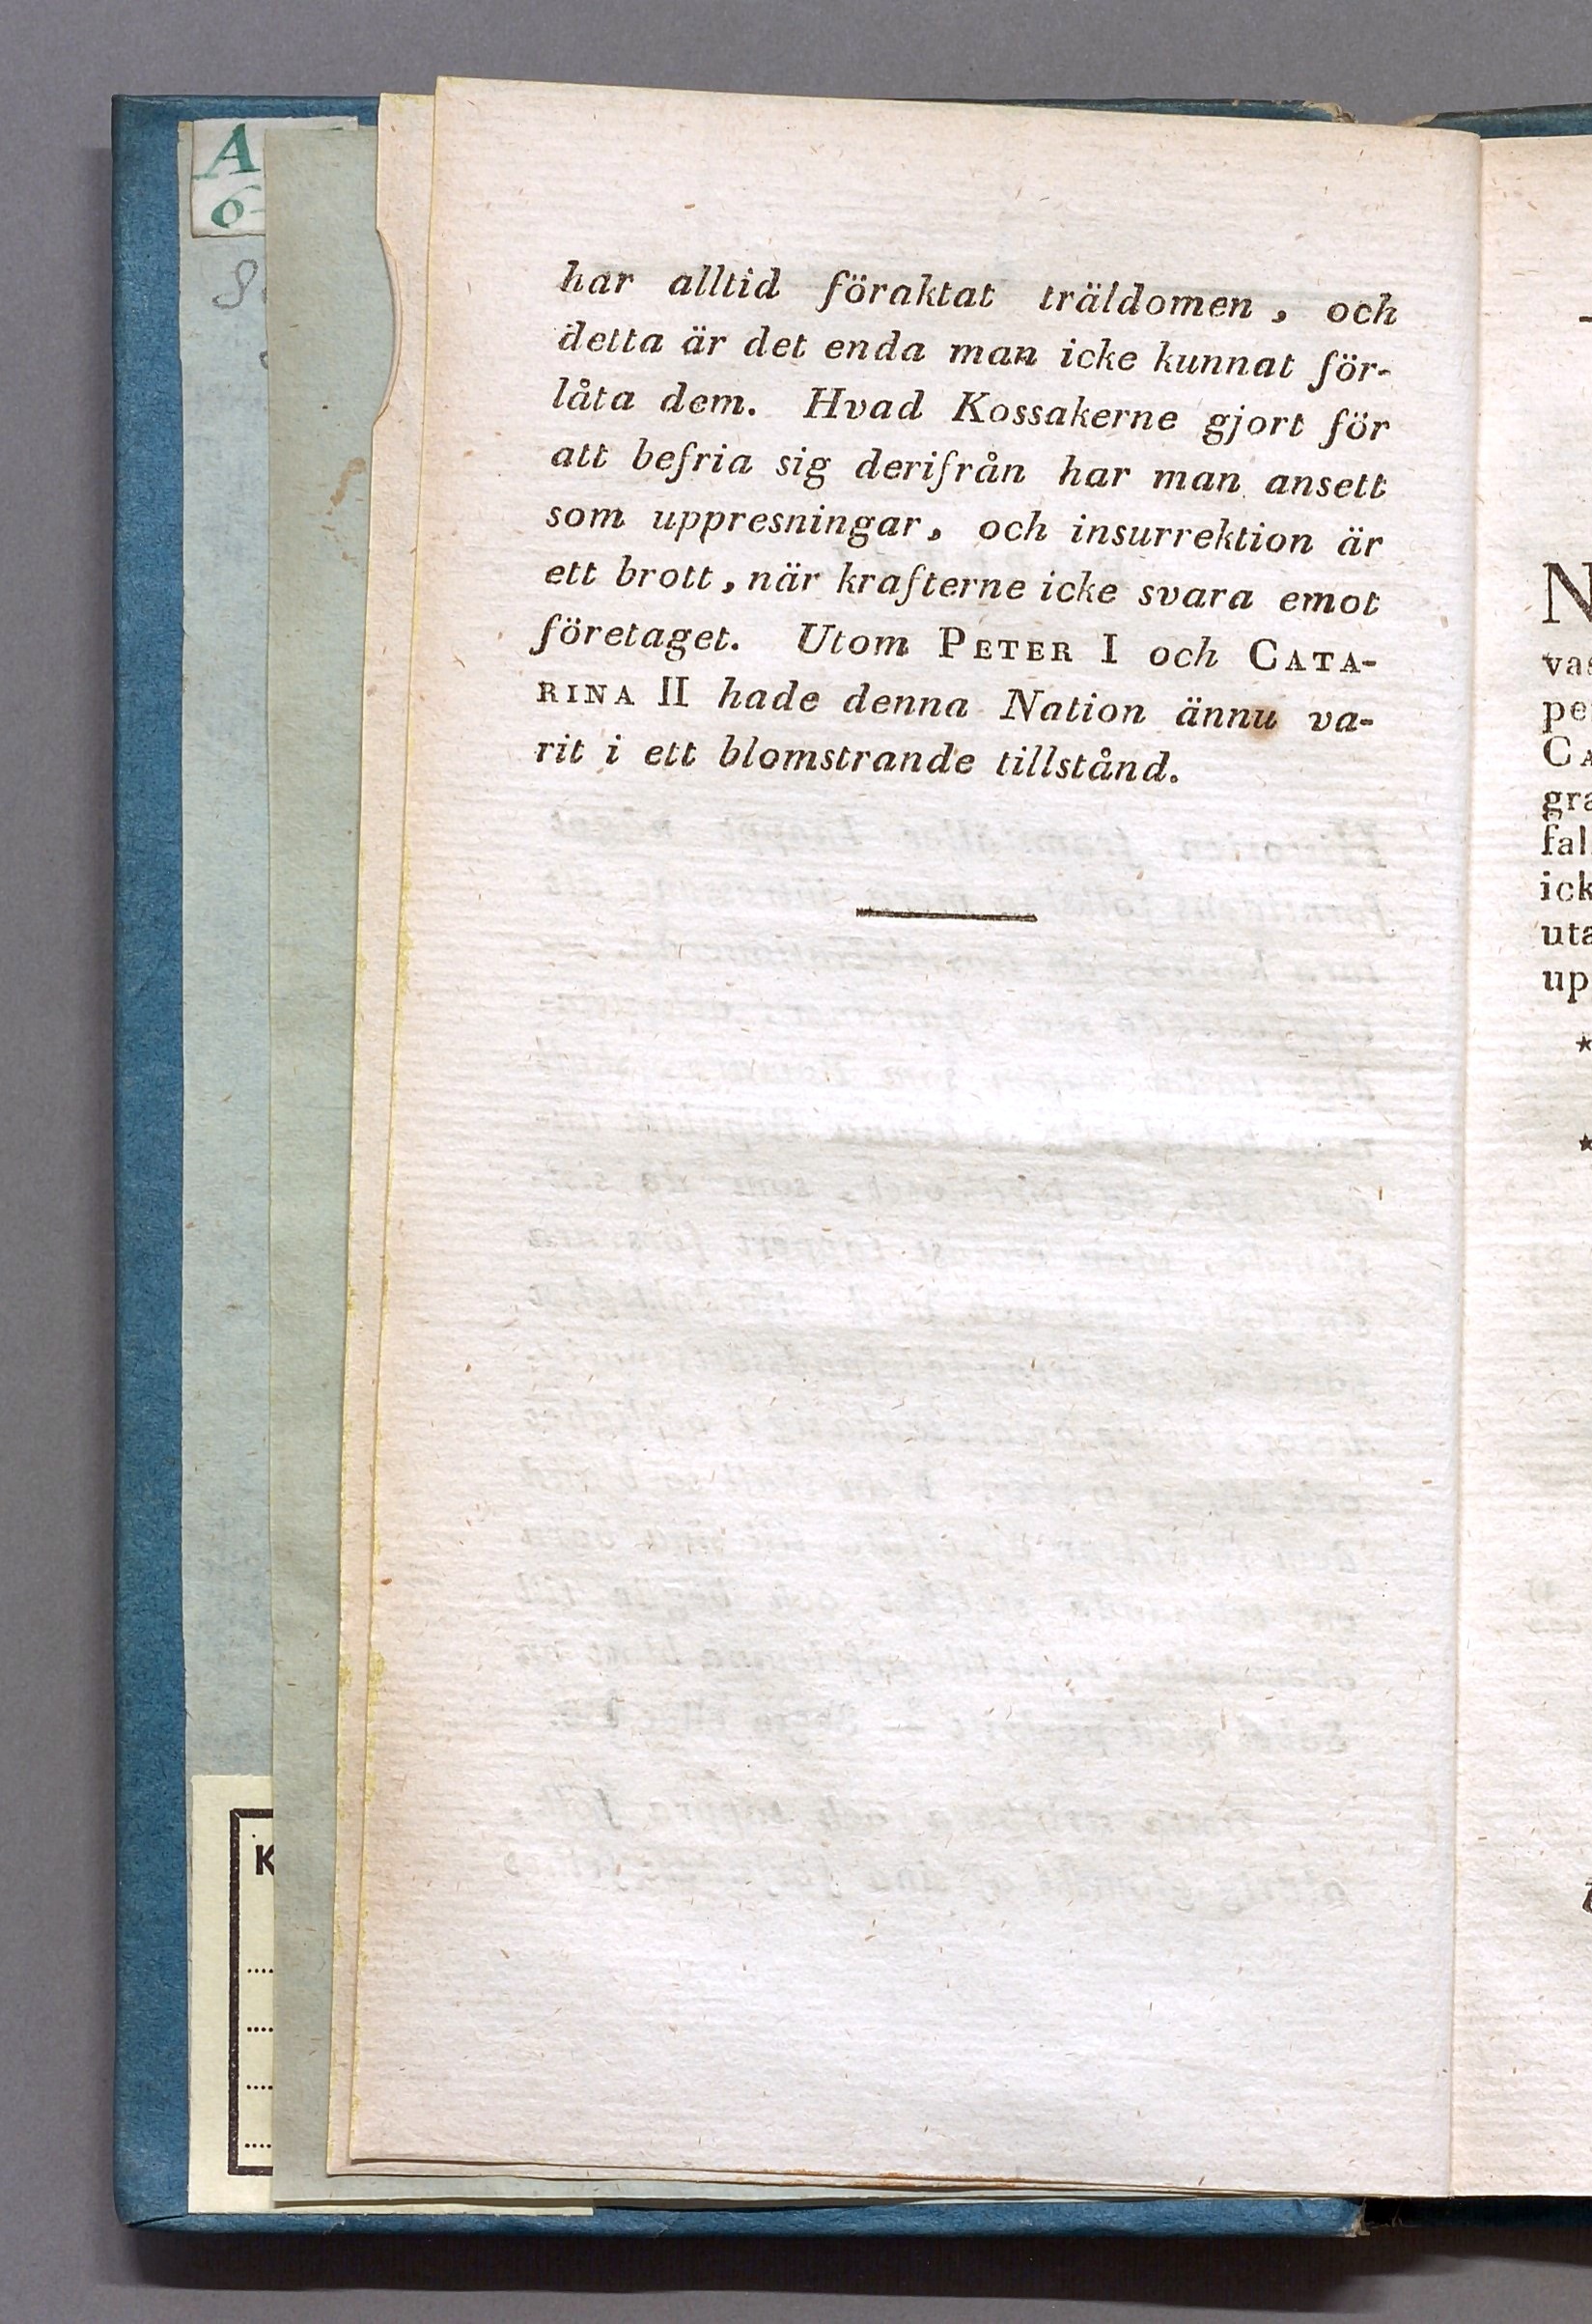 har alltid föraktat träldomen, och
detta är det enda man icke kunnat för-
låta dem. Hvad Kossakerne gjort för
att befria sig derifrån har man ansett
som uppresningar, och insurrektion är
ett brott, när krafterne icke svara emot
företaget. Utom PETER I och CATA-
RINA II hade denna Nation ännu va-
rit i ett blomstrande tillstånd.
A
6
K
N
vas
pe
CA
gra
fal
ick
uta
up
*
*